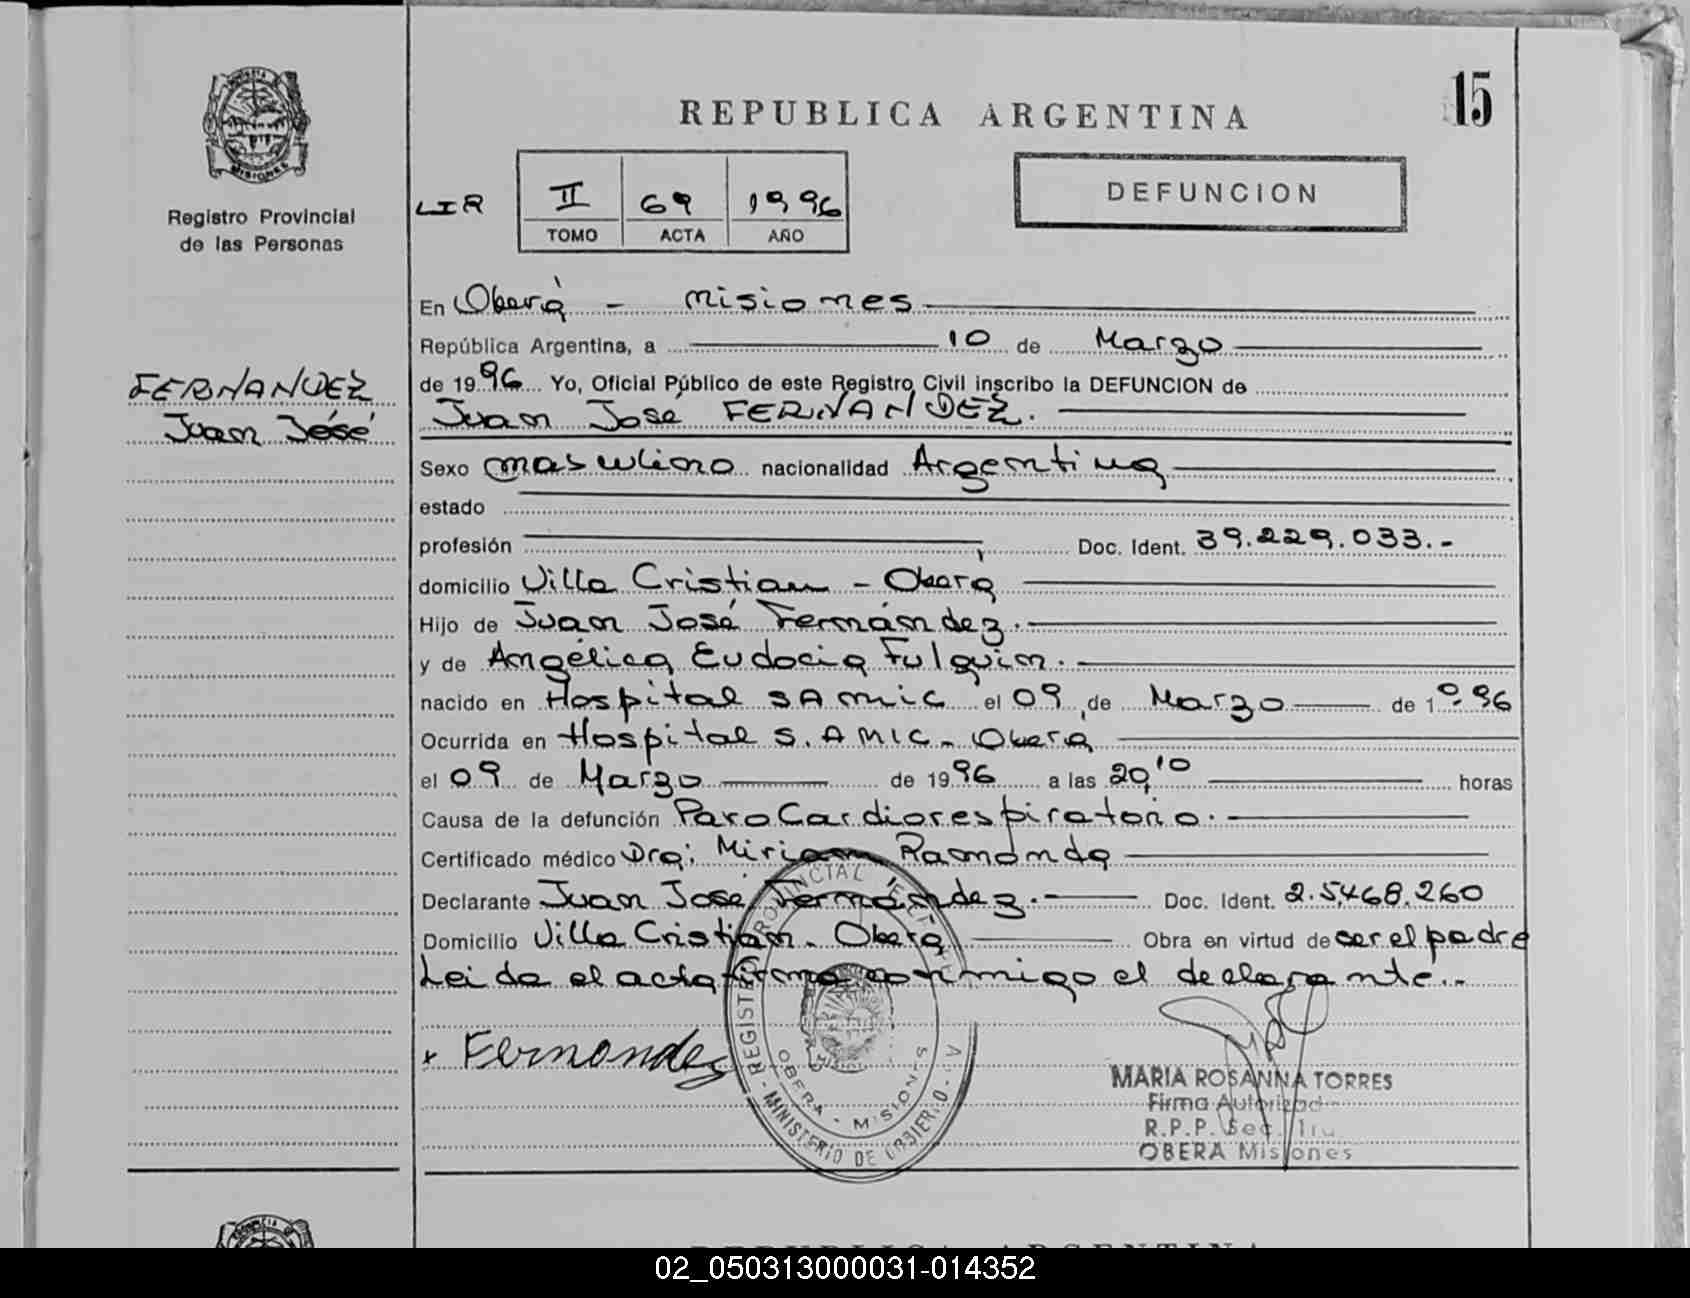 REPUBLICA ARGENTINA
15
MISIONES
Registro Provincial
de las Personas
LIR
II 69 1996
TOMO ACTA AÑO
DEFUNCION
En Oberá - Misiones
República Argentina, a 10 de Marzo
de 1996 Yo, Oficial Público de este Registro Civil inscribo la DEFUNCION de
Juan José FERNANDEZ.
FERNANDEZ
Juan José
Sexo masculino nacionalidad Argentina
estado
profesión Doc. Ident. 39.229.033.-
domicilio Villa Cristian - Oberá
Hijo de Juan José Fernández.
y de Angélica Eudocia Fulquin.
nacido en Hospital SAMIC el 09 de Marzo de 1996
Ocurrida en Hospital S.AMIC - Oberá
el 09 de Marzo de 1996 a las horas
Causa de la defunción Paro Cardiorespiratorio.
Certificado médico Dra: Miriam Ramonda
Declarante Juan José Fernández. Doc. Ident. 2.5468.260
Domicilio Villa Cristian - Oberá Obra en virtud de ser el padre
Leida el acta firma conmigo el declarante.-
x Fernandez
REGISTRO PROVINCIAL DE
OBERA - MISIONES
MINISTERIO DE GOBIERNO
MARIA ROSANNA TORRES
Firma Autorizad
R.P.P. Sec. 1ra
OBERA Misiones
REPUBLICA ARGENTINA
02_050313000031-014352